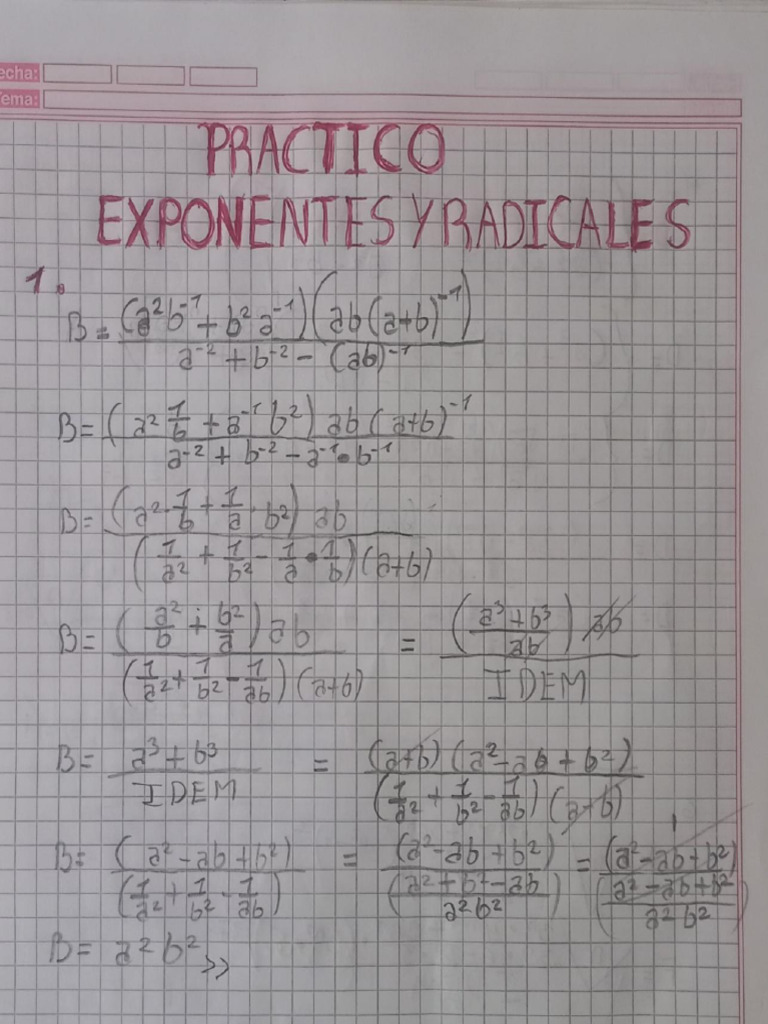 echa:
ema:
PRACTICO
EXPONENTES Y RADICALES
1.
B = (a²b⁻¹ + b²a⁻¹)(ab(a+b)⁻¹) / a⁻² + b⁻² - (ab)⁻¹
B = (a² 1/b + a⁻¹b²) ab (a+b)⁻¹ / a⁻² + b⁻² - a⁻¹•b⁻¹
B = (a²·1/b + 1/a·b²) ab / (1/a² + 1/b² - 1/a•1/b)(a+b)
B = (a²/b + b²/a) ab / (1/a² + 1/b² - 1/ab)(a+b) = (a³+b³/ab) ab / IDEM
B = a³ + b³ / IDEM = (a+b)(a²-ab+b²) / (1/a² + 1/b² - 1/ab)(a+b)
B = (a²-ab+b²) / (1/a² + 1/b² - 1/ab) = (a²-ab+b²) / (a²+b²-ab/a²b²) = (a²-ab+b²) 1 / (a²-ab+b²/a²b²)
B = a²b² >>